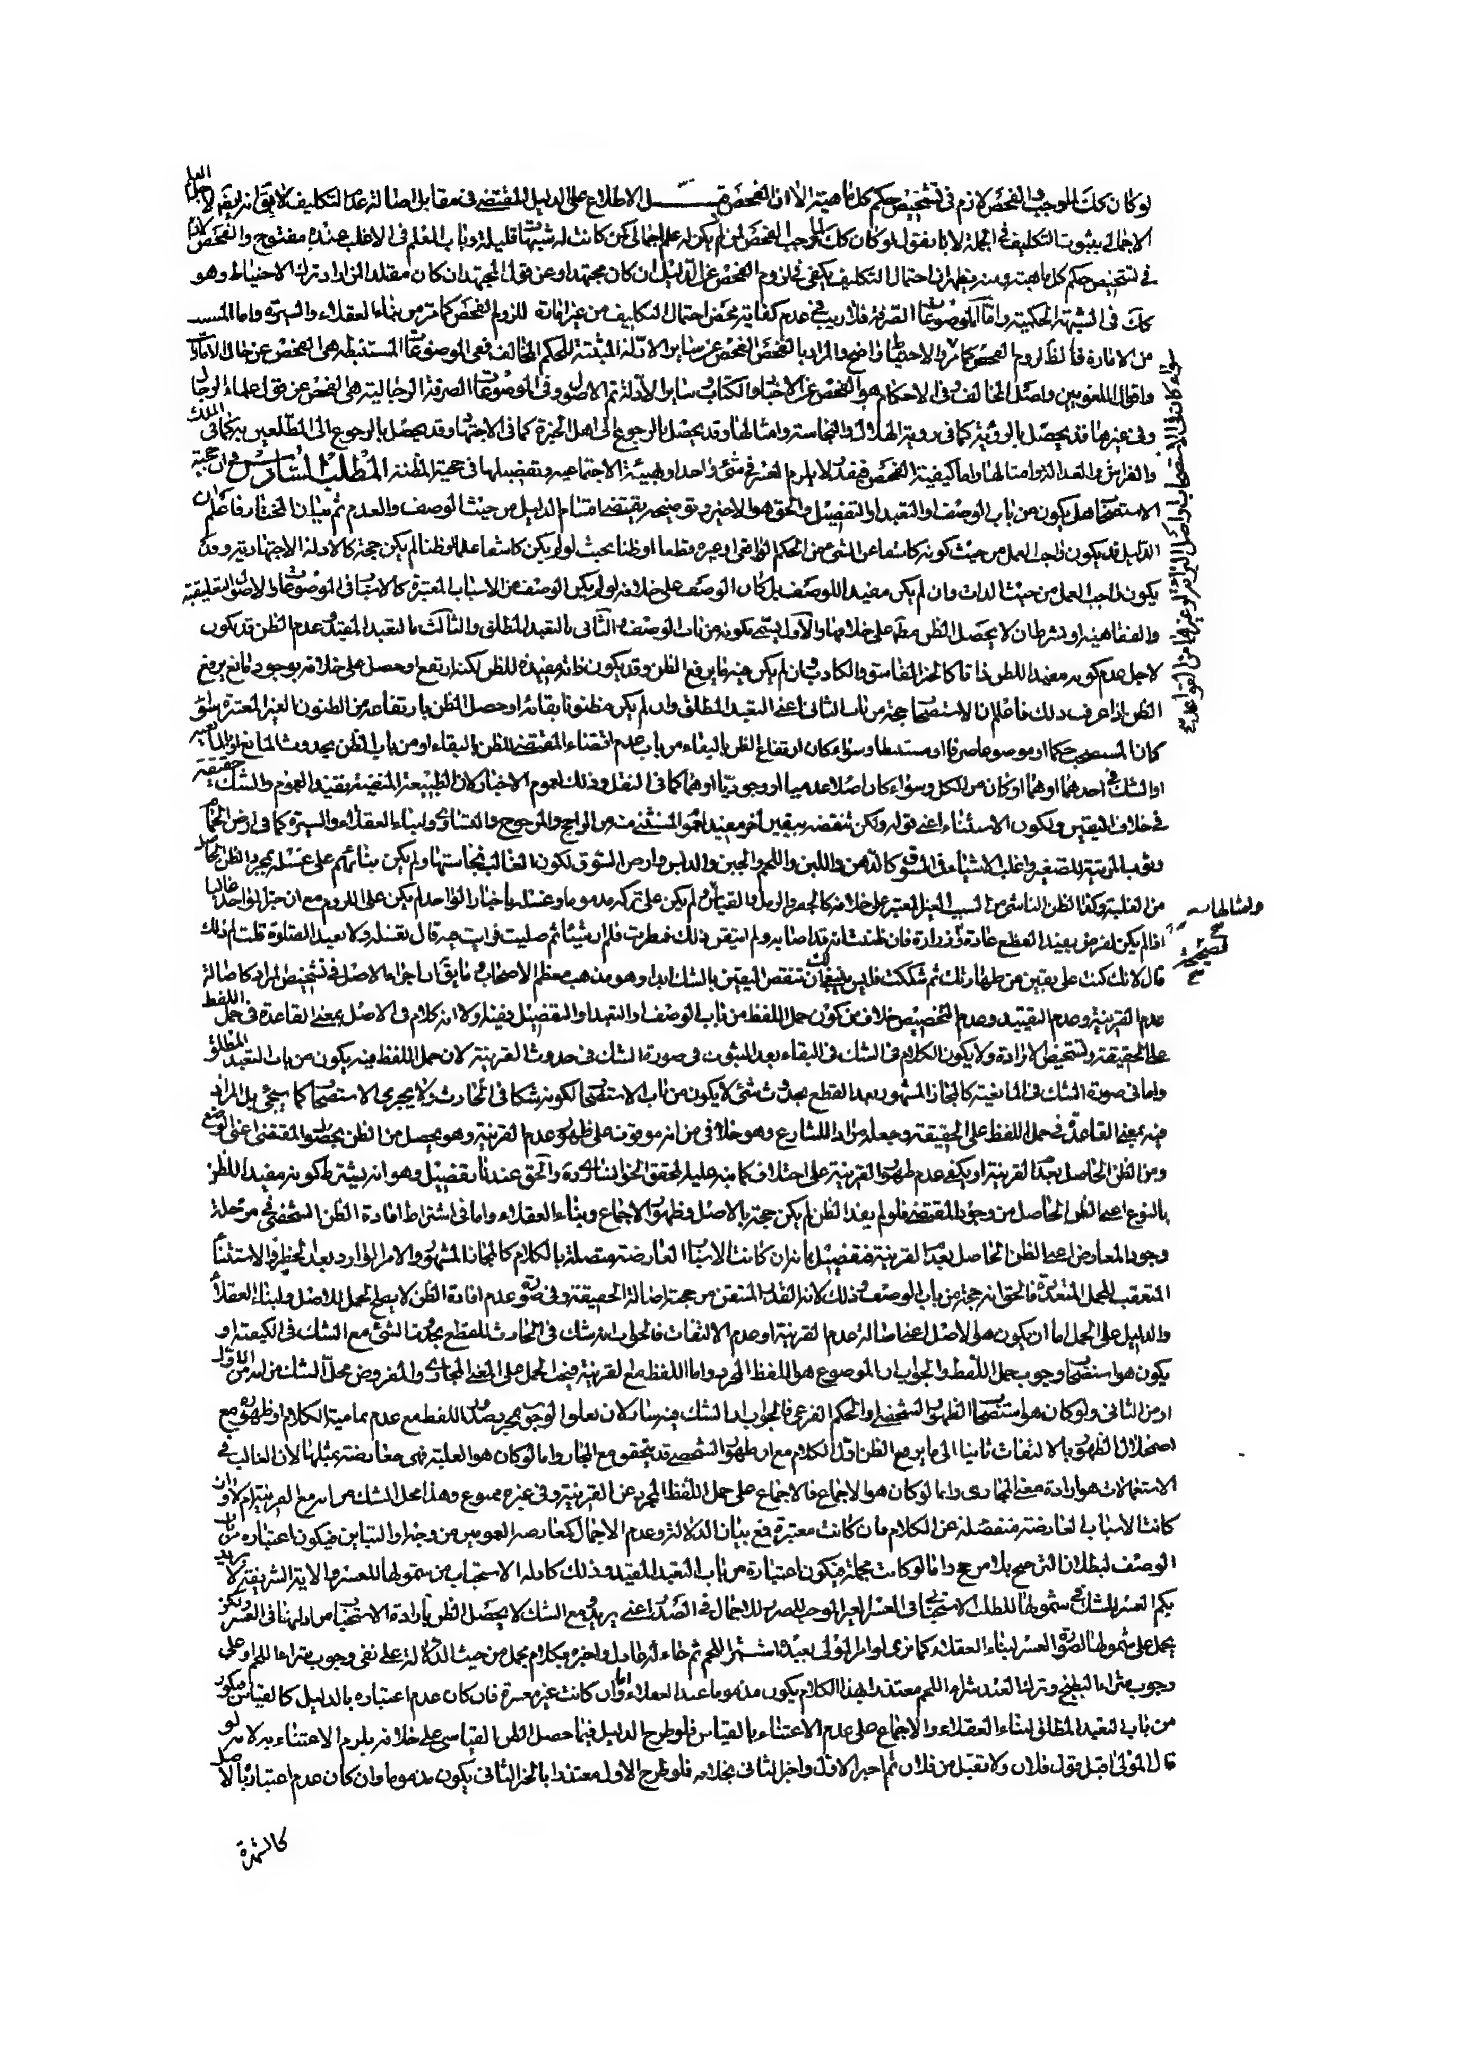 لو كان كك لموجب الفحص لازم فى تشخيص حكم كل ماهية الا ان الفحص قبل الاطلاع على الدليل المقتضى فى مقابل اصالة عدم التكليف لا يق انه يتم لاجل العلم
الاجمالى بثبوت التكليف فى الجملة لانا نقول لو كان كك لما وجب الفحص لمن لم يكن له علم اجمالى كمن كانت له شبهات قليلة وباب العلم فى الاغلب عنده مفتوح والفحص لازم
فى تشخيص حكم كل ماهية ومنه يظهر ان احتمال التكليف يكفى فى لزوم الفحص عن الدليل ان كان مجتهدا وعن قول المجتهد ان كان مقلدا لو اراد ترك الاحتياط وهو
كك فى الشبهة الحكمية واما الموضوعات الصرفة فلا ريب فى عدم كفاية محض احتمال التكليف من غير امارة للزوم الفحص كما مر من بناء العقلاء والسيرة واما
من الامارة فالظ لزوم الفحص كما مر والاحتياط واضح والمراد بالفحص الفحص عن ساير الادلة المثبتة للحكم المخالف ففى الموضوعات المستنبطة هى الفحص عن حال الامارات
واقوال اللغويين واصل المخالف فى الاحكام هو الفحص عن الاخبار والكتاب وساير الادلة ثم الاصول وفى الموضوعات الصرفة الرجالية هى الفحص عن قول علماء الرجال
وفى غيرها قد يحصل بالرؤية كما فى رؤية الهلال والنجاسة وامثالها وقد يحصل بالرجوع الى اهل الخبرة كما فى الاجتهاد وقد يحصل بالرجوع الى المطلعين به كما فى الملك
والفراش والعدالة وامثالها واما كيفية الفحص فبقدر لا يلزم العسر فى شئ واحد او بهيئة الاجتماعية وتفصيلها فى حجية المظنة المطلب السادس فى ان حجية
الاستصحاب هل يكون من باب الوصف او التعبد او التفصيل والحق هو الاخير وتوضيحه يقتضى اقسام الدليل من حيث الوصف والعدم ثم بيان المختار فاعلم ان
الدليل قد يكون واجب العمل من حيث كونه كاشفا عن الشئ من الحكم الواقعى او غيره قطعا او ظنا بحيث لو لم يكن كاشفا علما او ظنا لم يكن حجة كالادلة الاجتهادية وقد
يكون واجب العمل من حيث الذات وان لم يكن مفيدا للوصف بل كان الوصف على خلافه لو لم يكن الوصف من الاسباب المعتبرة كالاسباب فى الموضوعات والاصول التعليقية
والفقاهية او بشرط ان لا يحصل الظن مط على خلافها والاول يسمى بكونه من باب الوصف والثانى بالتعبد المطلق والثالث بالتعبد المقيد وعدم الظن قد يكون
لاجل عدم كونه مفيدا للظن ذاتا كالخبر الفاسق والكاذب وان لم يكن فيه ما يرفع الظن وقد يكون ذاته مفيدة للظن لكنه ارتفع او حصل على خلافه بوجود مانع يرفع
الظن اذا عرف ذلك فاعلم ان الاستصحاب حجة من باب الثانى اعنى التعبد المطلق وان لم يكن مظنونا بقائه او حصل الظن بارتفاعه من الظنون الغير المعتبرة سواء
كان المستصحب حكما او موضوعا صرفا او مستنبطا وسواء كان ارتفاع الظن بالبقاء من باب عدم اقتضاء المقتضى للظن بالبقاء او من باب الظن بحدوث المانع او المانعية
او الشك فى احدهما او هما او كان من الكل وسواء كان اصلا عدميا او وجوديا او هما كما فى النقل وذلك لعموم الاخبار لان الطبيعة المنفية يفيد العموم والشك حقيقة
فى خلاف اليقين ولكون الاستثناء اعنى قوله ولكن تنقضه بيقين آخر مفيد لعموم المستثنى منه من الراجح والمرجوح والتساوى ولبناء العقلاء والسيرة كما فى ارض الحمام
وثوب المربية للصغير واغلب الاشياء فى السوق كالدهن واللبن واللحم والجبن والدبس وارض السوق لكون الغالب نجاستها ولم يكن بنائهم على غسله بمجرد الظن الحاصل
من الغلبة وكذا الظن الناشئ من السبب الغير المعتبر على خلافه كالجفر والرمل والقياس ولم يكن على تركه مذموما وغسله باخبار الواحد لم يكن على اللزوم مع ان خبر الواحد غالبا
اذا لم يكن لغرض يفيد القطع عادة وزرارة فان ظننت انه قد اصابه ولم اتيقن ذلك فنظرت فلم ار شيئا ثم صليت فرايت فيه قال تغسله ولا تعيد الصلوة قلت لم ذلك
قال لانك كنت على يقين من طهارتك ثم شككت فليس ينبغى لك ان تنقض اليقين بالشك ابدا وهو مذهب معظم الاصحاب وما يق ان اجراء الاصل فى تشخيص المراد كاصالة
عدم القرينة وعدم التقييد وعدم التخصيص خلاف من كون حمل اللفظ من باب الوصف او التعبد او التفصيل وفيه اولا انه كلام فى الاصل بمعنى القاعدة فى حمل اللفظ
على الحقيقة وتشخيص الارادة ولا يكون الكلام فى الشك فى البقاء بعد الثبوت فى صورة الشك فى حدوث القرينة لان حمل اللفظ فيه يكون من باب التعبد المطلق
واما فى صورة الشك فى المانعية كالمجاز المشهور بعد القطع بحدوث شئ لا يكون من باب الاستصحاب لكونه شكا فى الحادث ولا يجرى الاستصحاب كما سيجئ بل المراد
فيه بمعنى القاعدة فى حمل اللفظ على الحقيقة وجعله مرادا للشارع وهو خلافى من انه موقوف على ظهور عدم القرينة وهو يحصل من الظن بحصول المقتضى اعنى الوضع
ومن الظن الحاصل بعدم القرينة او يكفى عدم ظهور القرينة على اختلاف كما نبه عليه المحقق الخوانسارى ره والحق عندنا تفصيل وهو انه يشترط كونه مفيدا للظن
بالنوع اعنى الظن الحاصل من وجود المقتضى فلو لم يفد الظن لم يكن حجة بالاصل وظهور الاجماع وبناء العقلاء واما فى اشتراط افادة الظن الشخصى فى مرحلة
وجود المعارض اعنى الظن الحاصل بعدم القرينة ففصيل بانه ان كانت الاسباب المعارضة متصلة بالكلام كالمجاز المشهور والامر الوارد بعد الحظر والاستثناء
المتعقب للجمل المتعددة فالحق انه حجة من باب الوصف وذلك لانه القدر المتيقن من حجية اصالة الحقيقة وفى صورة عدم افادة الظن لا يصح الحمل للاصل ولبناء العقلاء
والدليل على الحمل اما ان يكون هو الاصل اعنى اصالة عدم القرينة او عدم الالتفات فالجواب انه شك فى الحادث للقطع بحدوث الشئ مع الشك فى الكيفية او
يكون هو استصحاب وجوب حمل اللفظ والجواب ان الموضوع هو اللفظ المجرد واما اللفظ مع القرينة فيجب الحمل على المعنى المجازى والمفروض محل الشك من انه من الاول
او من الثانى ولو كان هو استصحاب الظهور الشخصى او الحكم الفرعى فالجواب ان الشك فيه سار لان تعلق الوجوب بمجرد صدور اللفظ مع عدم تمامية الكلام او ظهوره مع
اضمحلال الظهور بالالتفات ثانيا الى ما يرفع الظن اول الكلام مع ان ظهور الشخصى قد يتحقق مع المجاز واما لو كان هو الغلبة فهى معارضة بمثلها لان الغالب فى
الاستعمالات هو ارادة معنى المجازى واما لو كان هو الاجماع فالاجماع على حمل اللفظ المجرد عن القرينة وفى غيره ممنوع وهذا محل الشك من انه مع القرينة ام لا وان
كانت الاسباب المعارضة منفصلة عن الكلام فان كانت معتبرة فمع بيان الدلالة وعدم الاجمال كتعارض العمومين من وجه او التباين فيكون اعتباره من باب
الوصف لبطلان الترجيح بلا مرجح واما لو كانت مجملة فيكون اعتباره من باب التعبد المقيد وذلك كادلة الاستحباب من شمولها للعسر والاية الشريفة لا يريد
بكم العسر للشك فى شمولها للطلب الاستحبابى فى العسر الغير الموجب للضرر للاجمال فى الصدر اعنى يريد ومع الشك لا يحصل الظن بارادة الاستحباب من ادلتها فى العسر ولكن
يحمل على شمولها لصورة العسر لبناء العقلاء كما ترى لو امر المولى بعبده اشتر اللحم ثم جاء له عادل واخبره بكلام مجمل من حيث الدلالة على نفى وجوب شراء اللحم او على
وجوب شراء البطيخ وترك العبد شراء اللحم معتذرا بهذا الكلام يكون مذموما عند العقلاء واما ان كانت غير معتبرة فان كان عدم اعتباره بالدليل كالقياس فيكون
من باب التعبد المطلق لبناء العقلاء والاجماع على عدم الاعتناء بالقياس فلو طرح الدليل فيما حصل الظن القياسى على خلافه يلزم الاعتناء به لانه لو
قال المولى اقبل قول فلان ولا تقبل من فلان ثم اخبر الاول واخبر الثانى بخلافه فلو طرح الاول معتذرا بالخبر الثانى يكون مذموما وان كان عدم اعتباره بالاصل
كالشهرة
وامثالها
لصحيحة